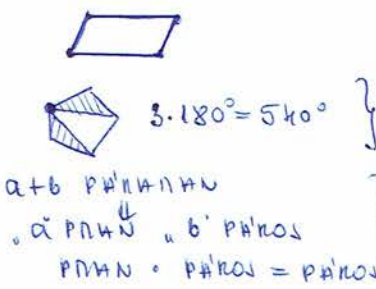 3·180°=540°
a+b PÁRATLAN
⇓
"a" PTLAN "b" PÁROS
PTLAN · PÁROS = PÁROS